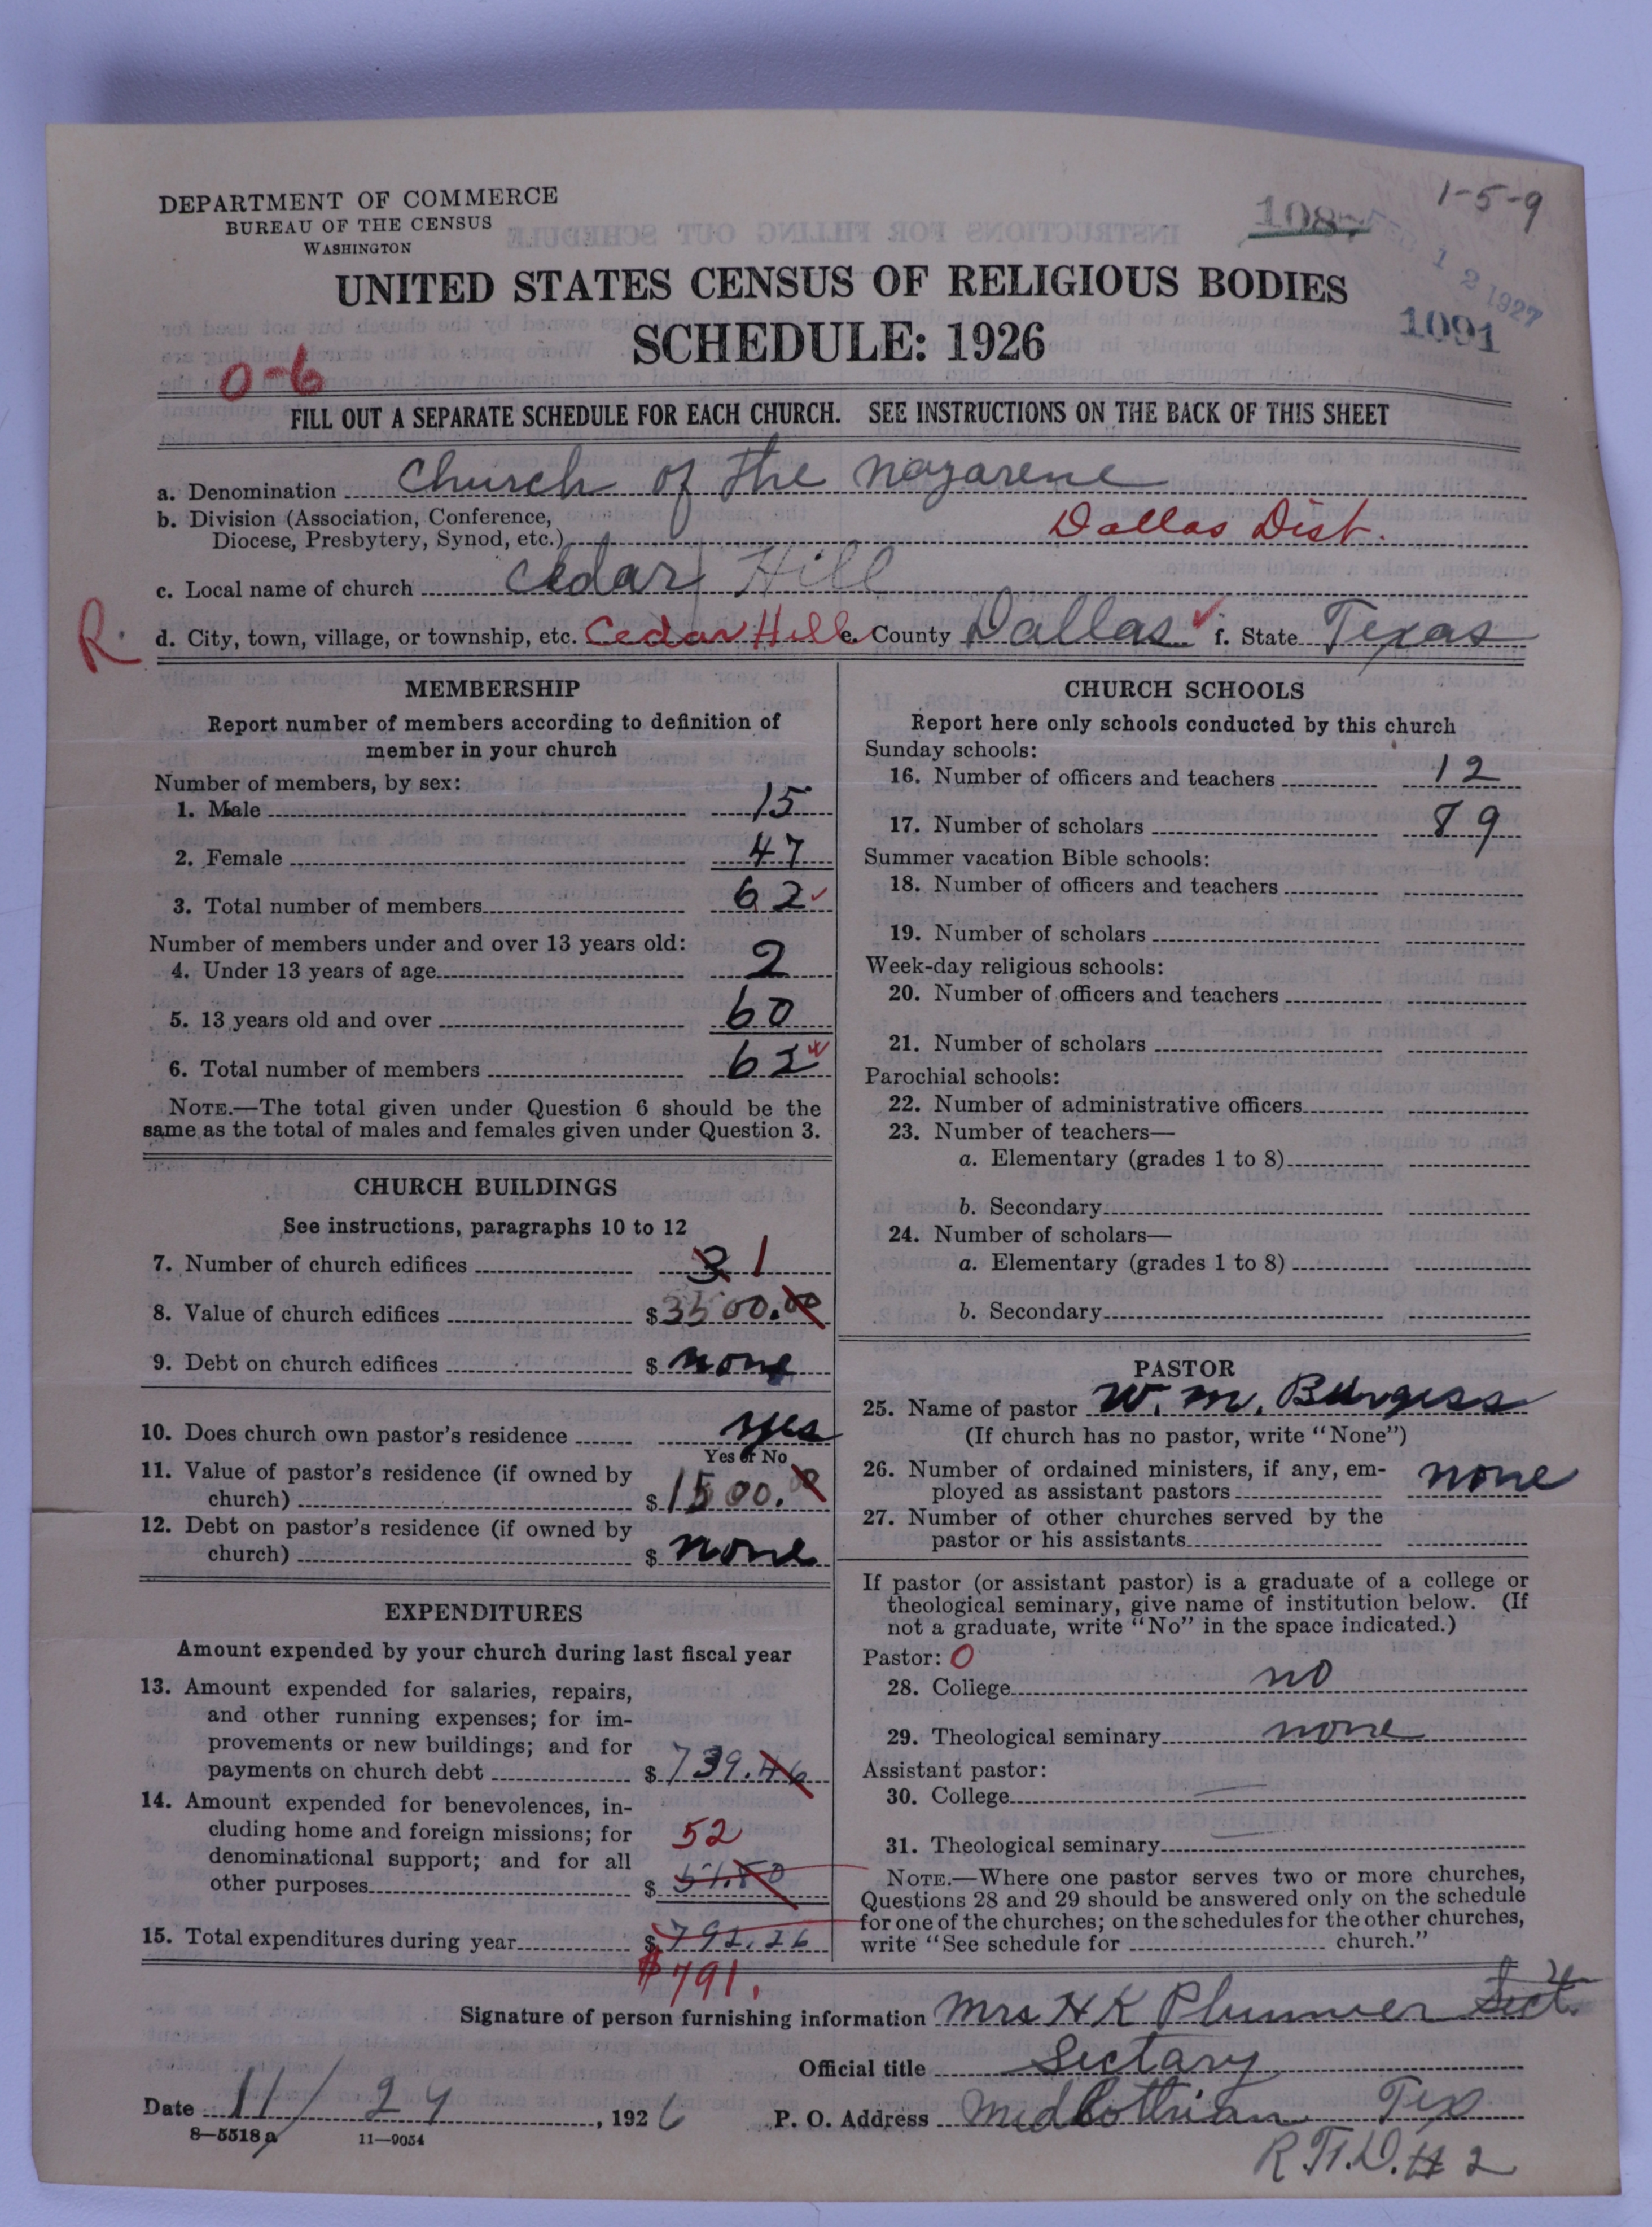 DEPARTMENT OF COMMERCE
BUREAU OF THE CENSUS
WASHINGTON
1-5-9
1087
FEB 12 1927
1091
UNITED STATES CENSUS OF RELIGIOUS BODIES
SCHEDULE: 1926
0-6
FILL OUT A SEPARATE SCHEDULE FOR EACH CHURCH. SEE INSTRUCTIONS ON THE BACK OF THIS SHEET
a. Denomination Church of the Nazarene
b. Division (Association, Conference,
Diocese, Presbytery, Synod, etc.) Dallas Dist.
c. Local name of church Cedar Hill
R. d. City, town, village, or township, etc. Cedar Hill e. County Dallas f. State Texas
MEMBERSHIP
Report number of members according to definition of
member in your church
Number of members, by sex:
1. Male 15
2. Female 47
3. Total number of members 62
Number of members under and over 13 years old:
4. Under 13 years of age 2
5. 13 years old and over 60
6. Total number of members 62
NOTE.—The total given under Question 6 should be the
same as the total of males and females given under Question 3.
CHURCH BUILDINGS
See instructions, paragraphs 10 to 12
7. Number of church edifices 3 1
8. Value of church edifices $3500.00
9. Debt on church edifices $ none
10. Does church own pastor's residence yes
Yes or No
11. Value of pastor's residence (if owned by
church) $1500.00
12. Debt on pastor's residence (if owned by
church) $ none
EXPENDITURES
Amount expended by your church during last fiscal year
13. Amount expended for salaries, repairs,
and other running expenses; for im-
provements or new buildings; and for
payments on church debt $739.46
14. Amount expended for benevolences, in-
cluding home and foreign missions; for 52
denominational support; and for all
other purposes $51.80
15. Total expenditures during year $791.26
$791.
CHURCH SCHOOLS
Report here only schools conducted by this church
Sunday schools:
16. Number of officers and teachers 12
17. Number of scholars 89
Summer vacation Bible schools:
18. Number of officers and teachers
19. Number of scholars
Week-day religious schools:
20. Number of officers and teachers
21. Number of scholars
Parochial schools:
22. Number of administrative officers
23. Number of teachers—
a. Elementary (grades 1 to 8)
b. Secondary
24. Number of scholars—
a. Elementary (grades 1 to 8)
b. Secondary
PASTOR
25. Name of pastor W. M. Burgess
(If church has no pastor, write "None")
26. Number of ordained ministers, if any, em-
ployed as assistant pastors none
27. Number of other churches served by the
pastor or his assistants
If pastor (or assistant pastor) is a graduate of a college or
theological seminary, give name of institution below. (If
not a graduate, write "No" in the space indicated.)
Pastor: 0
28. College no
29. Theological seminary none
Assistant pastor:
30. College
31. Theological seminary
NOTE.—Where one pastor serves two or more churches,
Questions 28 and 29 should be answered only on the schedule
for one of the churches; on the schedules for the other churches,
write "See schedule for church."
Signature of person furnishing information Mrs H K Plummer Sect.
Official title Sectary
Date 11/24, 1926 P. O. Address Midlothian Tex
8—5518 a 11—9054
R.F.D. # 2